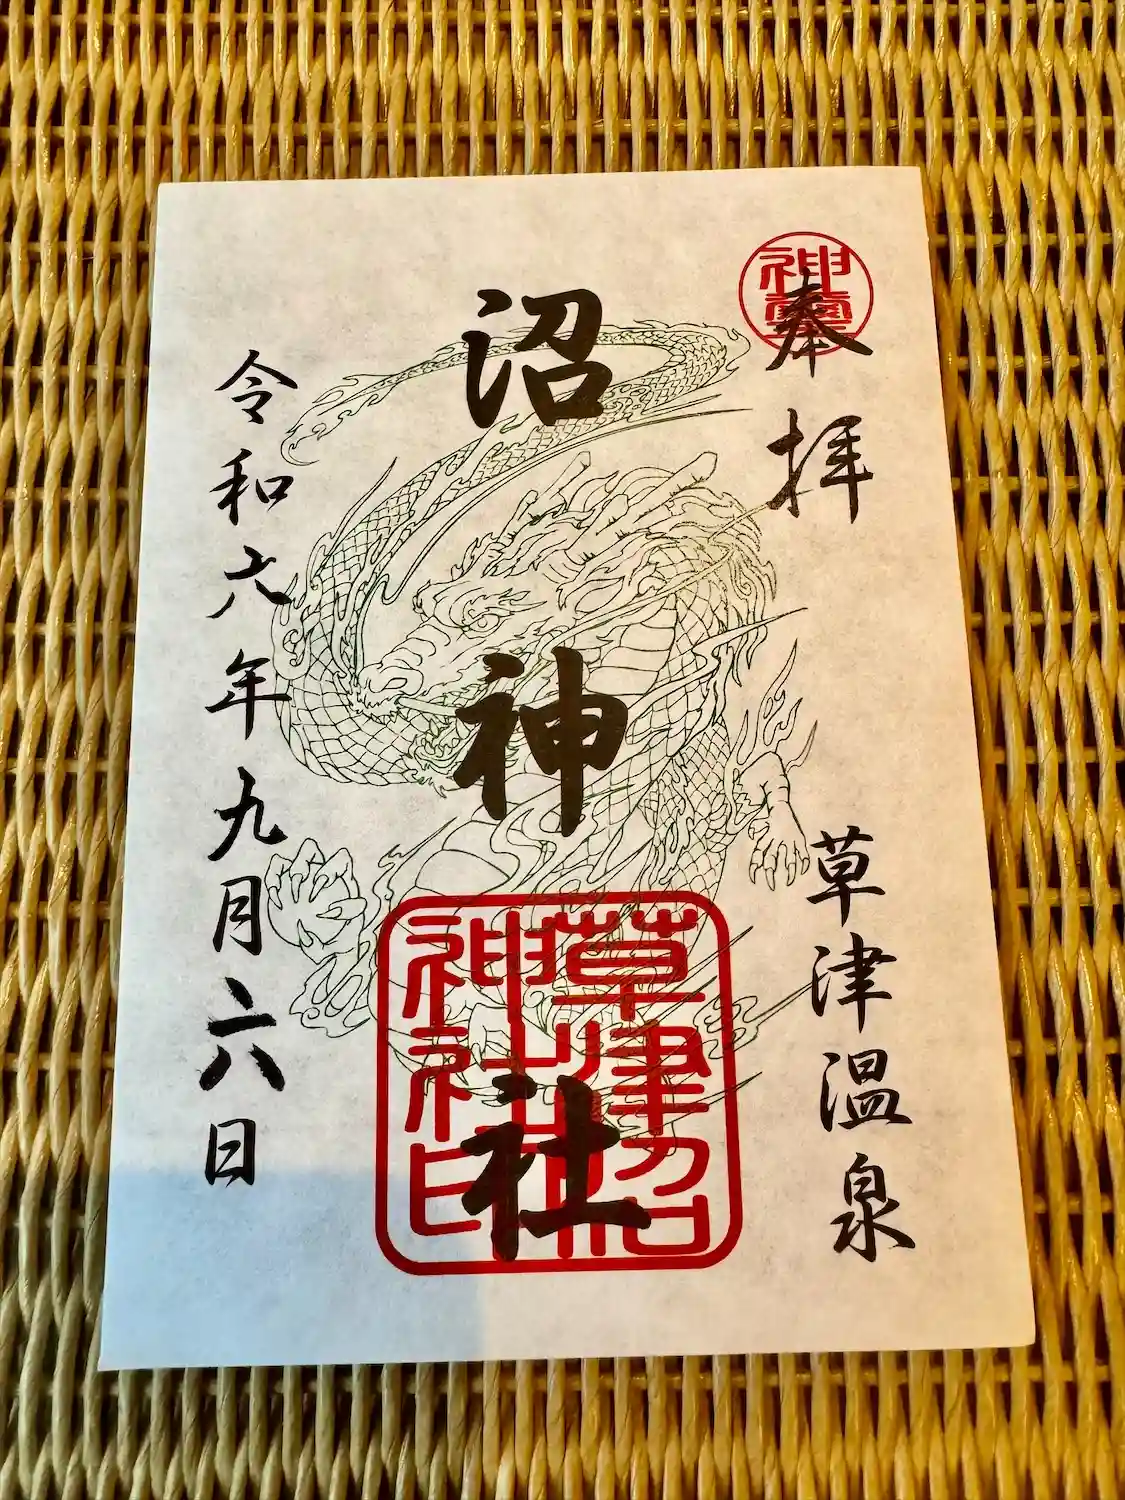 奉拝
草津温泉
沼神社
令和六年九月六日
神霊
草津沼
神社印